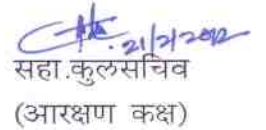 21/2/2012
सहा.कुलसचिव
(आरक्षण कक्ष)